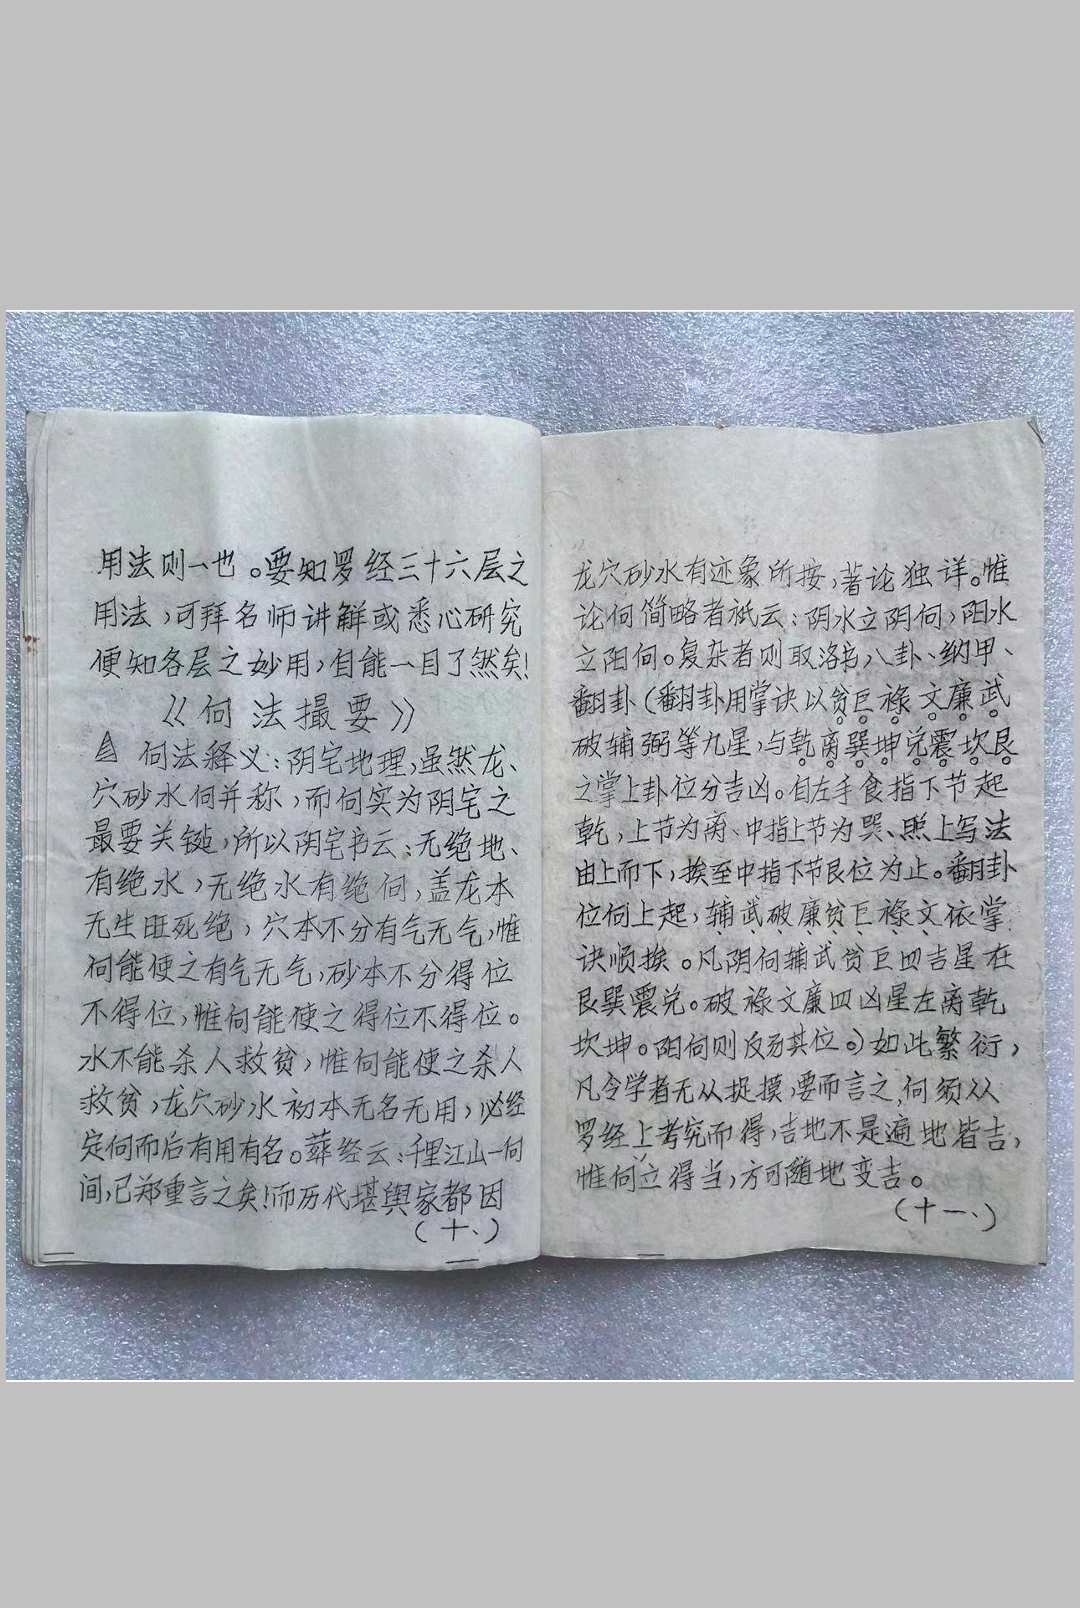 用法则一也。要知罗经三十六层之
用法，可拜名师讲解或悉心研究
便知各层之妙用，自能一目了然矣！
《向法撮要》
向法释义：阴宅地理，虽然龙、
穴砂水向并称，而向实为阴宅之
最要关键，所以阴宅书云：无绝地、
有绝水，无绝水有绝向，盖龙本
无生旺死绝，穴本不分有气无气，惟
向能使之有气无气，砂本不分得位
不得位，惟向能使之得位不得位。
水不能杀人救贫，惟向能使之杀人
救贫，龙穴砂水初本无名无用，必经
定向而后有用有名。葬经云：千里江山一向
间，已郑重言之矣！而历代堪舆家都因
（十、）
龙穴砂水有迹象所按，著论独详。惟
论向简略者祇云：阴水立阴向，阳水
立阳向。复杂者则取洛书，八卦、纳甲、
翻卦（翻卦用掌诀以贫巨禄文廉武
破辅弼等九星，与乾离巽坤兑震坎艮
之掌上卦位分吉凶。自左手食指下节起
乾，上节为离、中指上节为巽、照上写法
由上而下，挨至中指下节艮位为止。翻卦
位向上起，辅武破廉贫巨禄文依掌
诀顺挨。凡阴向辅武贫巨四吉星在
艮巽震兑。破禄文廉四凶星左离乾
坎坤。阳向则反易其位。）如此繁衍，
凡令学者无从捉摸，要而言之，向须从
罗经上考究而得，吉地不是遍地皆吉，
惟向立得当，方可随地变吉。
（十一、）